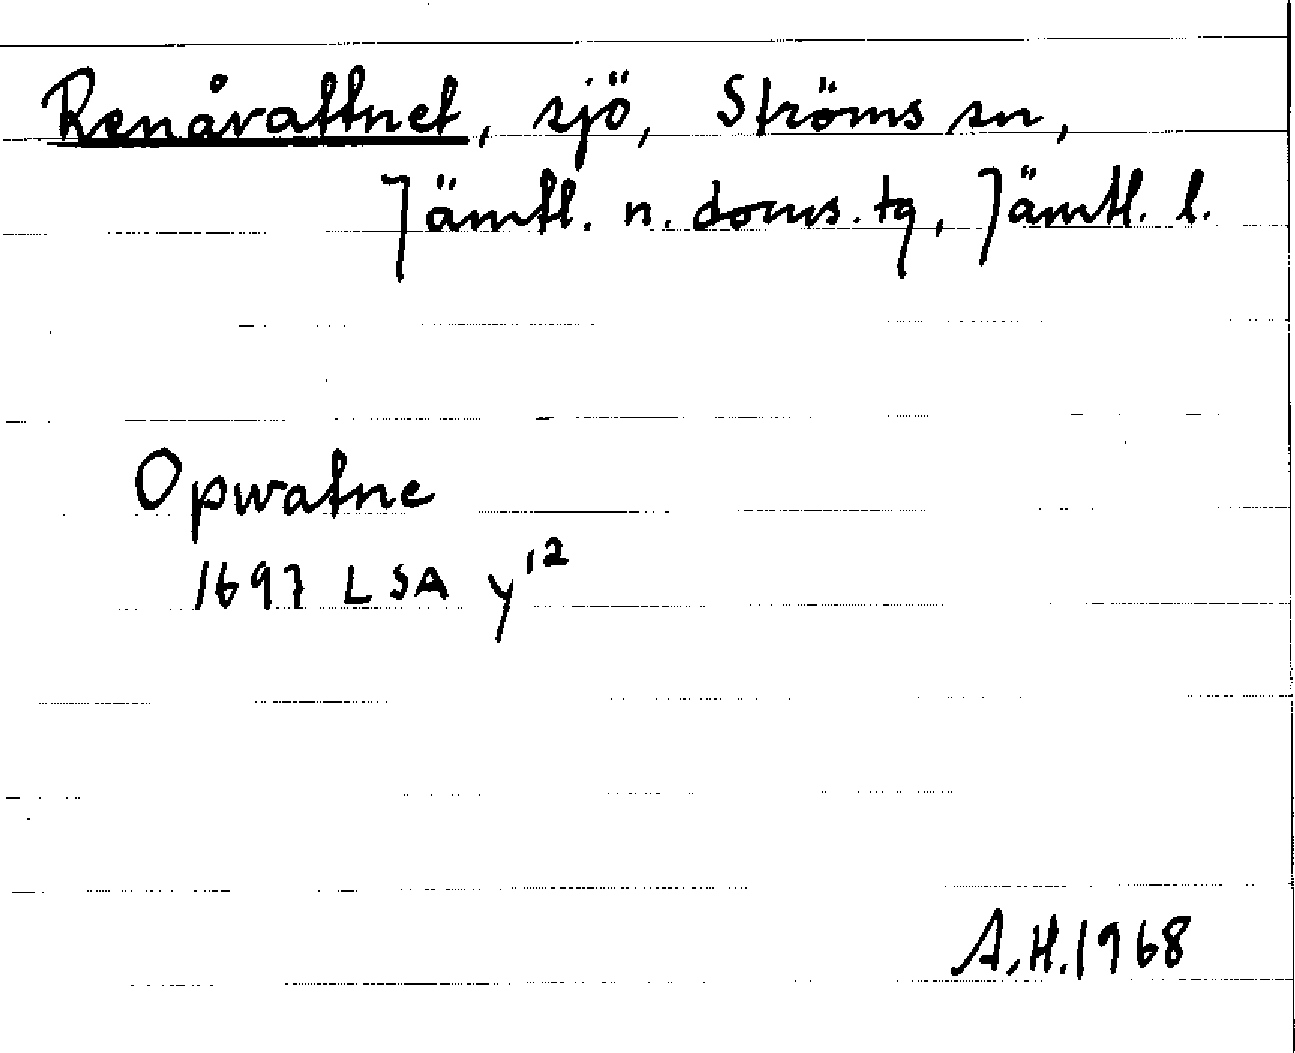 Renåvattnet, sjö, Ströms sn,
Jämtl. n. doms. tg, Jämtl. l.
Opwatne
1697 LSA y¹²
A.H. 1968